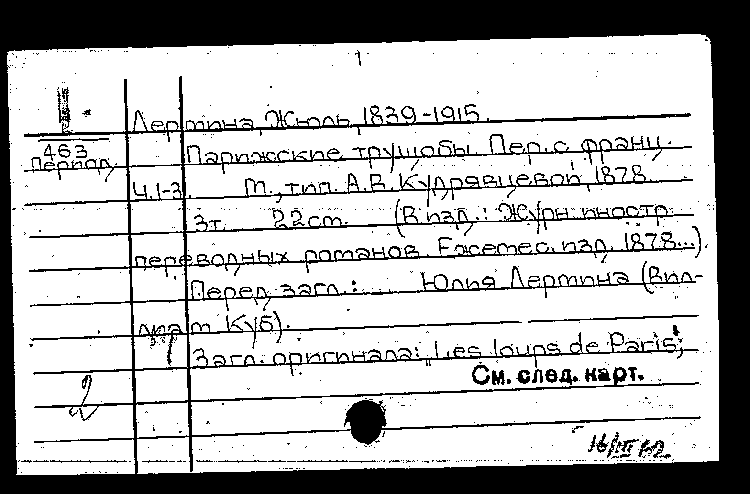 1
Лермина, Жюль, 1839-1915.
463
Период.
Парижские трущобы. Пер. с франц.
Ч.1-3. М., тип. А.В. Кудрявцевой, 1878.
3т. 22 cm. (В изд.: Журн. иностр.
переводных романов. Ежемес. изд. 1878...).
Перед загл.: ... Юлия Лермина (Вил-
лиам Куб).
Загл. оригинала: "Les loups de Paris;
См. след. карт.
2
16/III 62